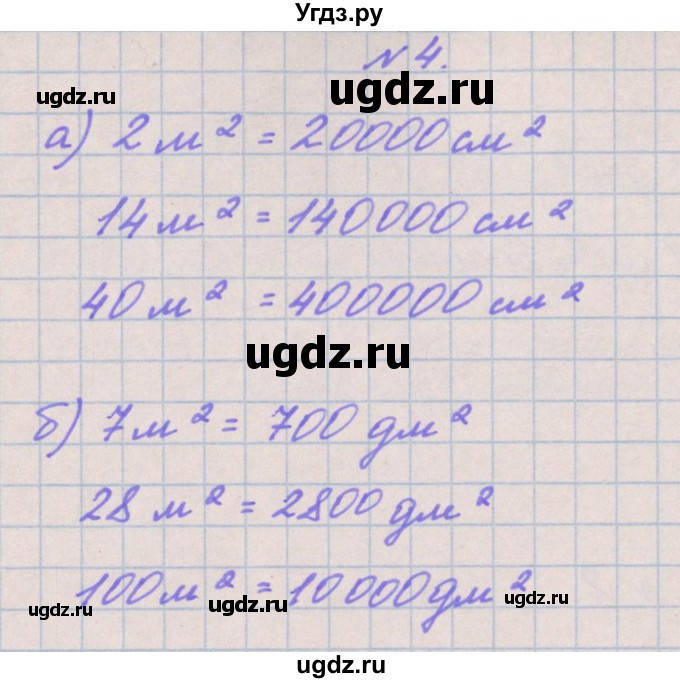 Угдз.ру
№ 4.
ugdz.ru ugdz.ru
а) 2 м² = 20000 см²
14 м² = 140000 см²
40 м² = 400000 см²
ugdz.ru
б) 7 м² = 700 дм²
28 м² = 2800 дм²
100 м² = 10 000 дм²
ugdz.ru ugdz.ru ugdz.ru
ugdz.ru